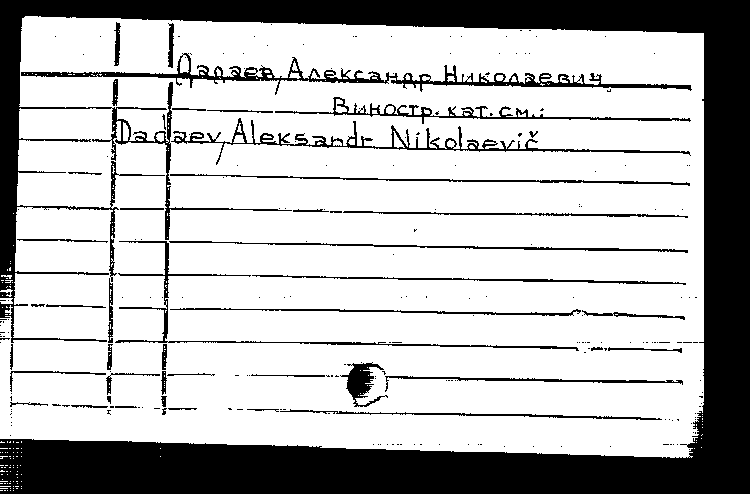 Дадаев, Александр Николаевич.
В иностр. кат. см.:
Dadaev, Aleksandr Nikolaevič